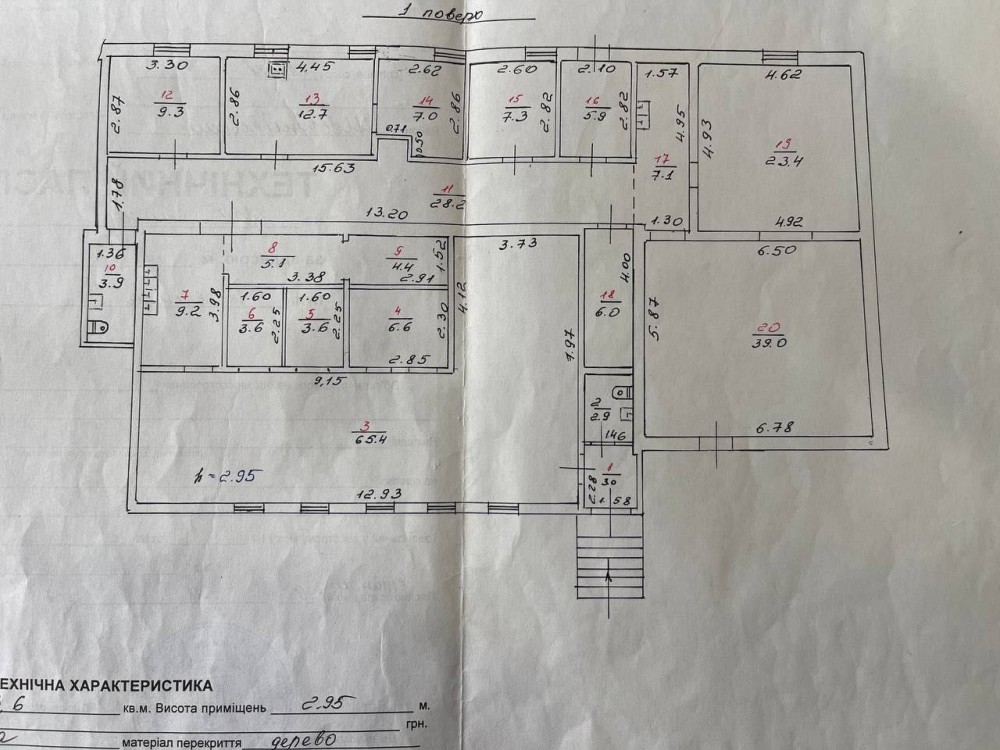 1 поверх
3.30 4.45 2.62 2.60 2.10 1.57 4.62
2.87 12 9.3 2.86 13 12.7 14 7.0 2.86 15 7.3 2.82 16 5.9 2.82 4.95 4.93 19 23.4
0.71 0.50
15.63 17 7.1
1.78 11 28.2
13.20 1.30 4.92
1.36 8 5.1 9 4.4 1.52 3.73 6.50
10 3.9 3.38 2.91 4.00
7 9.2 3.98 1.60 1.60 4.12 18 6.0 5.87
6 3.6 2.25 5 3.6 2.25 4 6.6 2.30 20 39.0
2.85 7.97
9,15
2 2.9
3 65.4 1.46 6.78
h=2.95 1 3.0
12.93 2.28 1.58
ЕХНІЧНА ХАРАКТЕРИСТИКА
6 кв.м. Висота приміщень 2.95 м.
грн.
а матеріал перекриття дерево